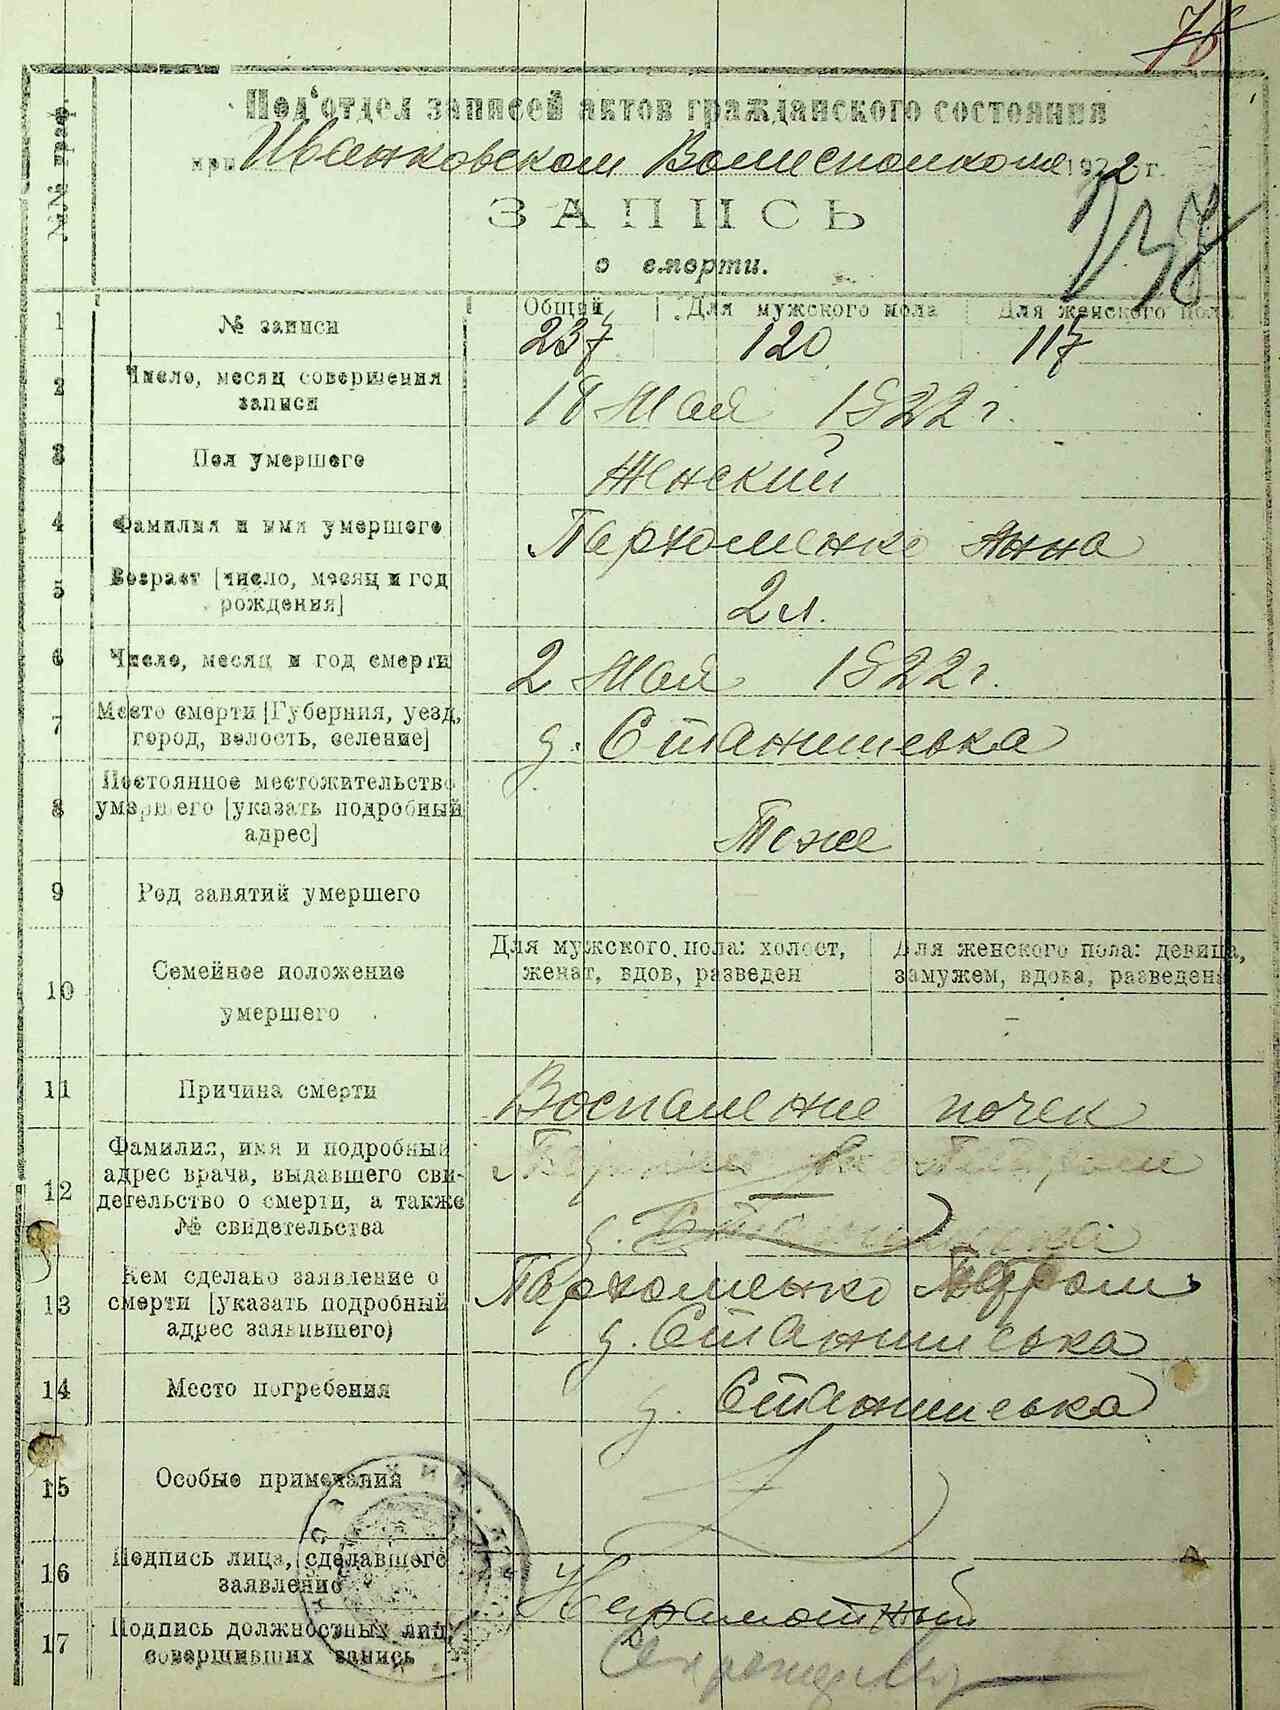 76
№№ граф
Под'отдел записей актов гражданского состояния
при Иванковском Волисполкоме 1922 г.
ЗАПИСЬ
о смерти.
238
1 № записи Общий 237 Для мужского пола 120 Для женского пола 117
2 Число, месяц совершения
записи 18 Мая 1922 г.
3 Пол умершего Женский
4 Фамилия и имя умершего Пархоменко Анна
5 Возраст [число, месяц и год
рождения] 2 л.
6 Число, месяц и год смерти 2 Мая 1922 г.
7 Место смерти [Губерния, уезд,
город, волость, селение] д. Станишевка
8 Постоянное местожительство
умершего [указать подробный
адрес] Тоже
9 Род занятий умершего
10 Семейное положение
умершего
Для мужского пола: холост,
женат, вдов, разведен
Для женского пола: девица,
замужем, вдова, разведена
-
11 Причина смерти Воспаление почек
12 Фамилия, имя и подробный
адрес врача, выдавшего сви-
детельство о смерти, а также
№ свидетельства
д. Станишевка
13 Кем сделано заявление о
смерти [указать подробный
адрес заявившего)
Пархоменко
д. Станишевка
14 Место погребения д. Станишевка
15 Особые примечания
16 Подпись лица, сделавшего
заявление Неграмотный
17 Подпись должностных лиц,
совершивших запись Секретарь